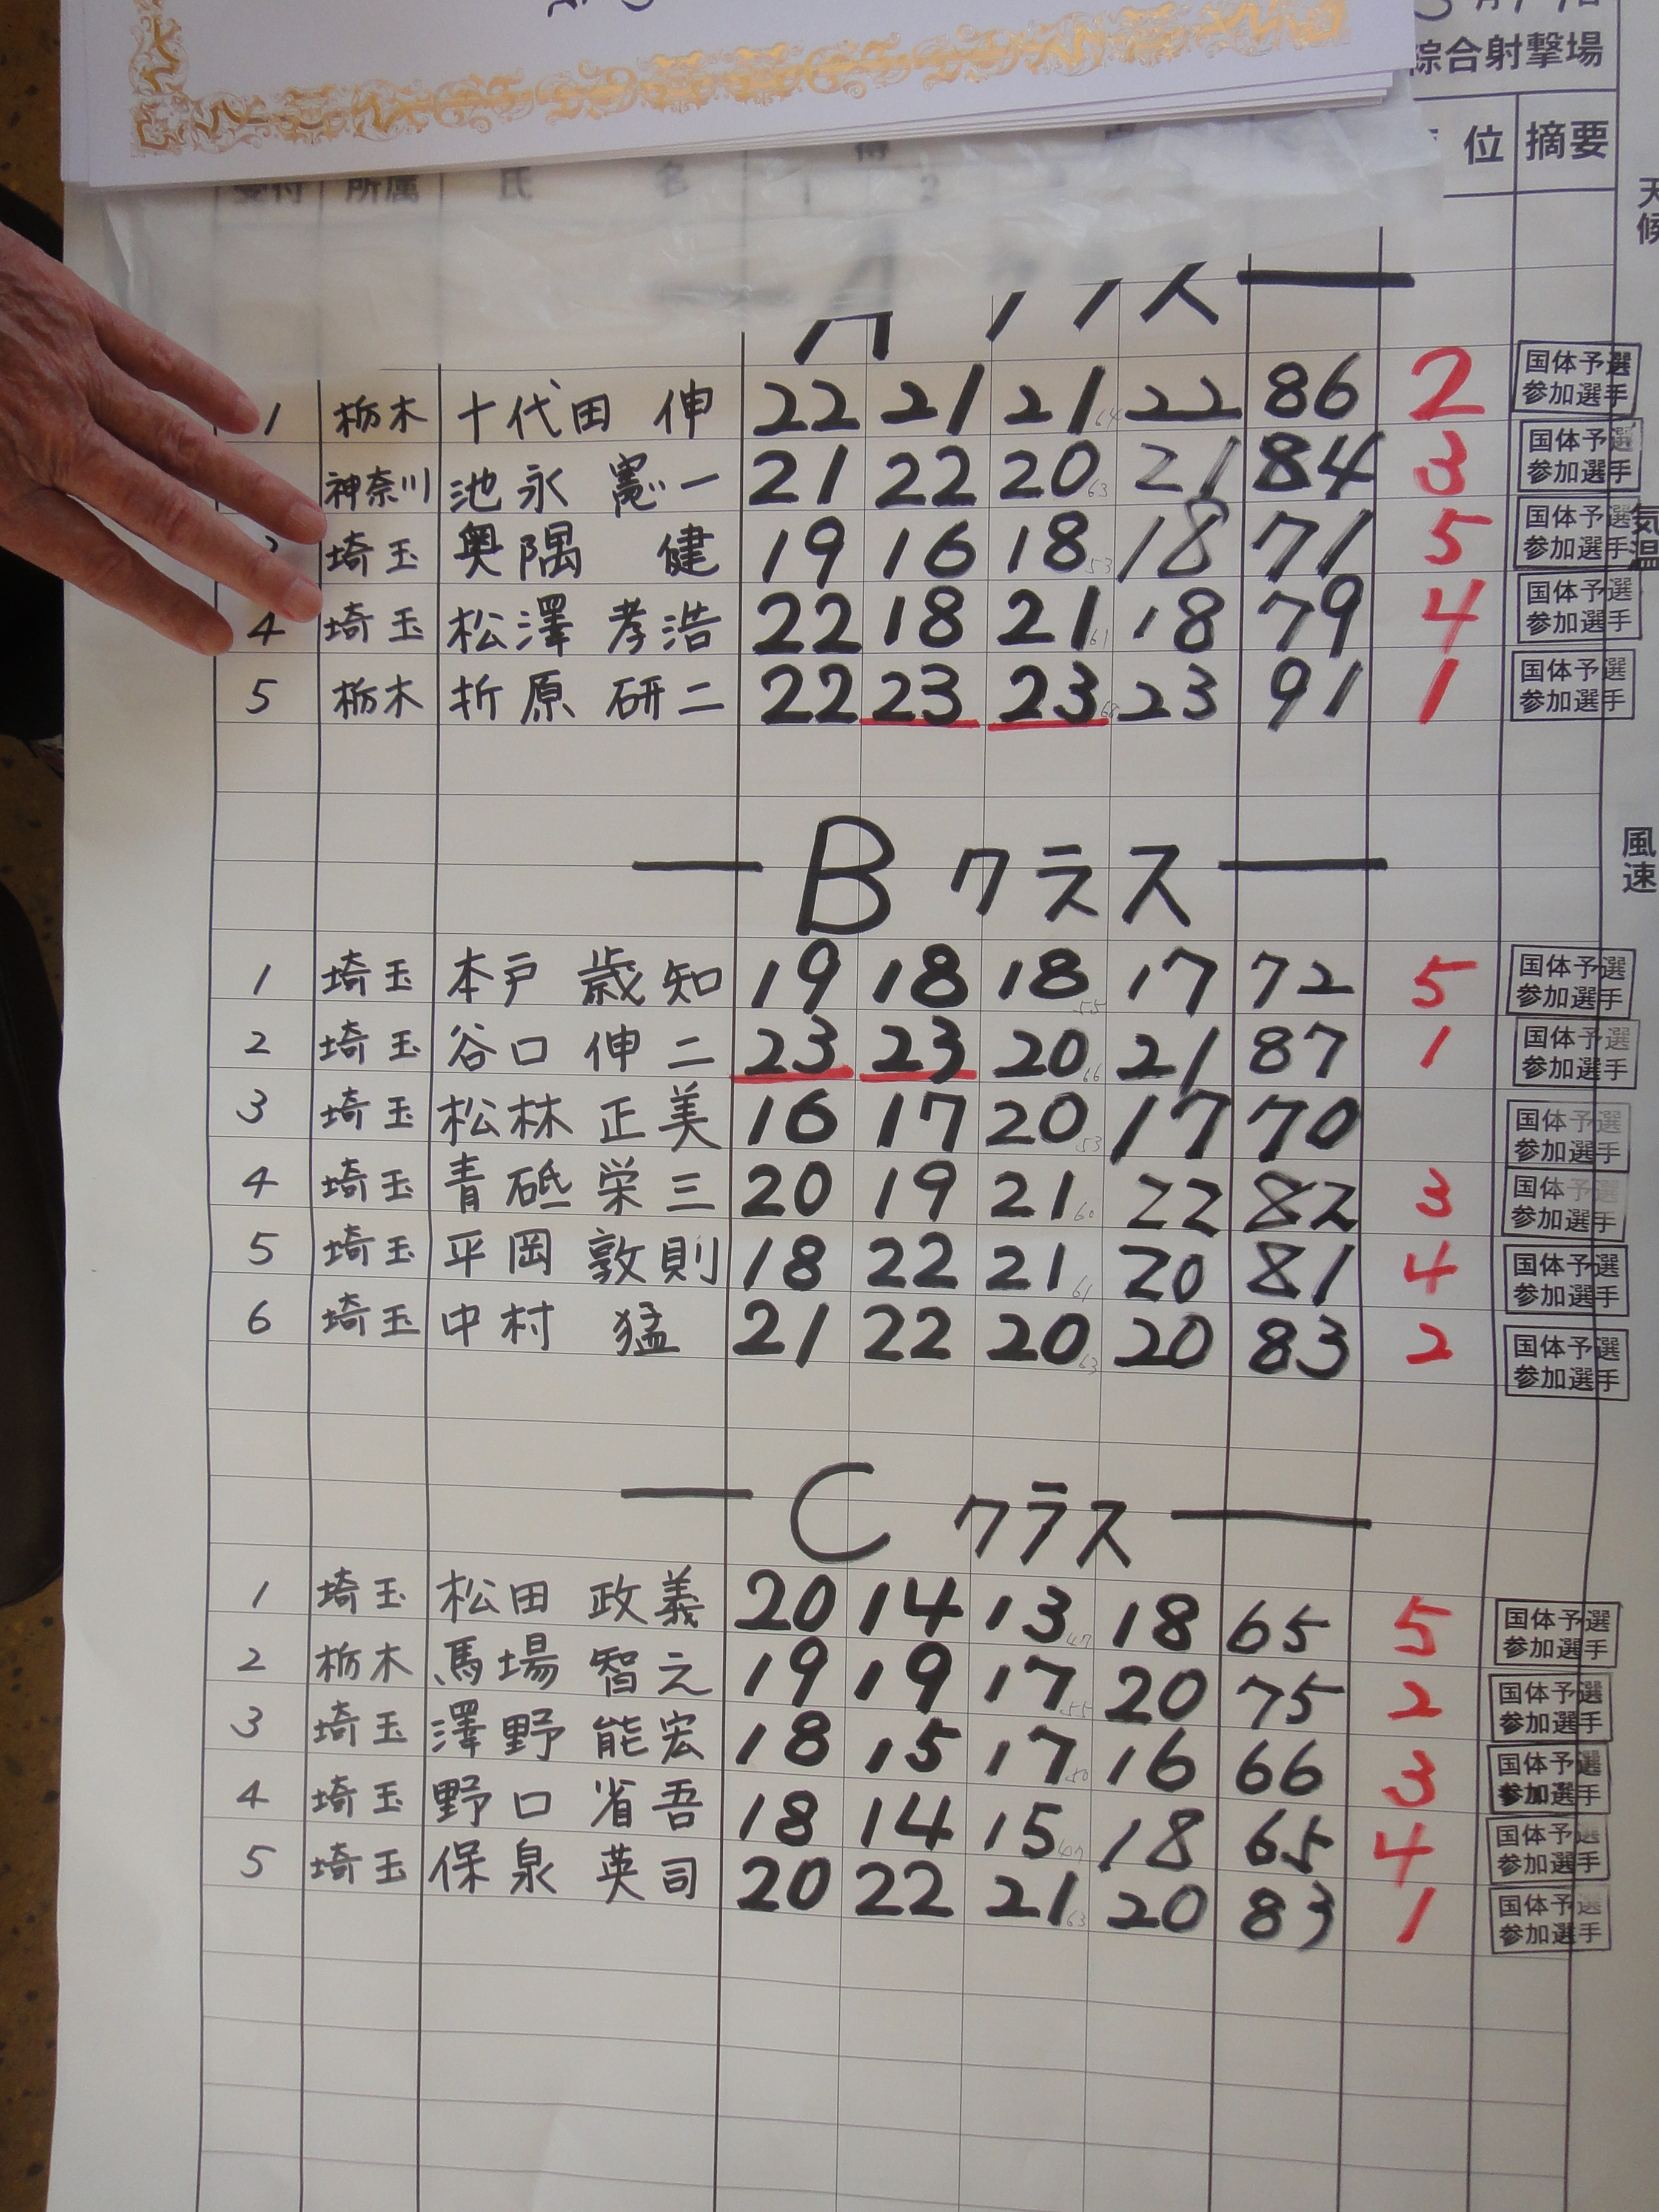 綜合射撃場
位 摘要
所属 氏 名 1 2
天候
クラス
1 栃木 十代田 伸 22 21 21 64 22 86 2 国体予選 参加選手
神奈川 池永 憲一 21 22 20 63 21 84 3 国体予選 参加選手
埼玉 奥隅 健 19 16 18 53 18 71 5 国体予選 参加選手
気温
4 埼玉 松澤 孝浩 22 18 21 61 18 79 4 国体予選 参加選手
5 栃木 折原 研二 22 23 23 68 23 91 1 国体予選 参加選手
風速
B クラス
1 埼玉 本戸 歳知 19 18 18 55 17 72 5 国体予選 参加選手
2 埼玉 谷口 伸二 23 23 20 66 21 87 1 国体予選 参加選手
3 埼玉 松林 正美 16 17 20 53 17 70 国体予選 参加選手
4 埼玉 青砥 栄三 20 19 21 60 22 82 3 国体予選 参加選手
5 埼玉 平岡 敦則 18 22 21 61 20 81 4 国体予選 参加選手
6 埼玉 中村 猛 21 22 20 63 20 83 2 国体予選 参加選手
C クラス
1 埼玉 松田 政義 20 14 13 47 18 65 5 国体予選 参加選手
2 栃木 馬場 智之 19 19 17 55 20 75 2 国体予選 参加選手
3 埼玉 澤野 能宏 18 15 17 50 16 66 3 国体予選 参加選手
4 埼玉 野口 省吾 18 14 15 47 18 65 4 国体予選 参加選手
5 埼玉 保泉 英司 20 22 21 63 20 83 1 国体予選 参加選手